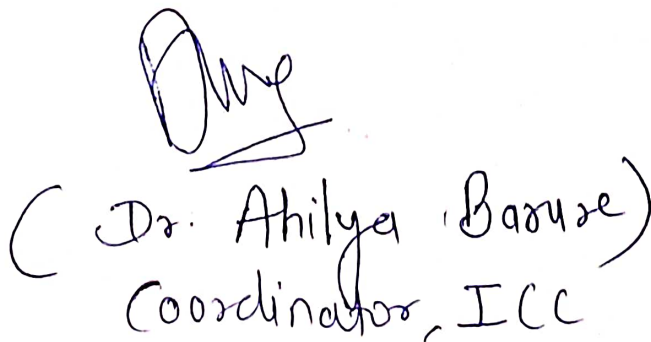 (Dr. Ahilya Barure)
Coordinator, ICC